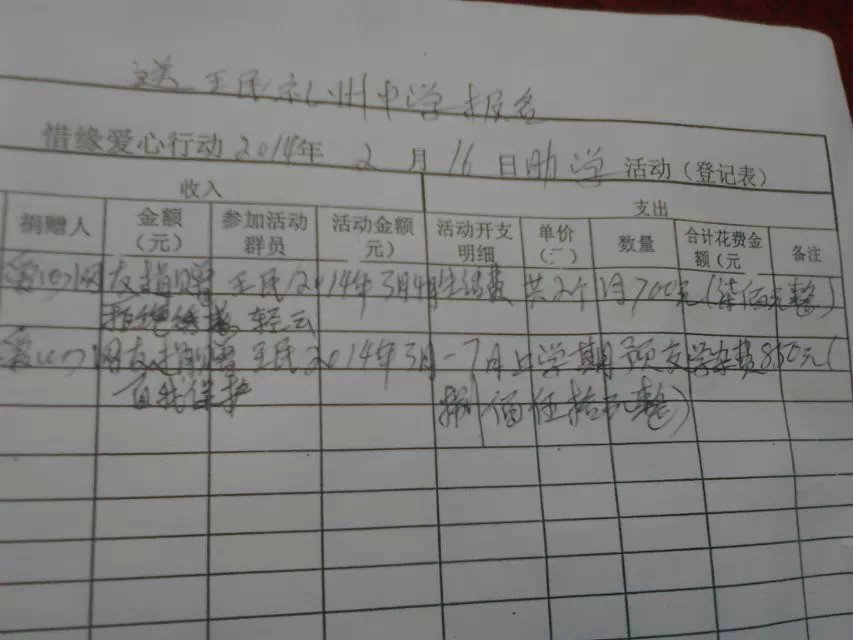 送王民礼州中学报名
惜缘爱心行动2014年2月16日助学活动（登记表）
收入 支出
捐赠人 金额（元） 参加活动群员 活动金额元） 活动开支明细 单价（二） 数量 合计花费金额（元 备注
爱心网友捐赠王民2014年3月4月生活费共2个月700元（柒佰元整）
拒绝 轻云
爱心网友捐赠王民2014年3月-7月上学期预交学杂费850元（
自我保护 捌佰伍拾元整）